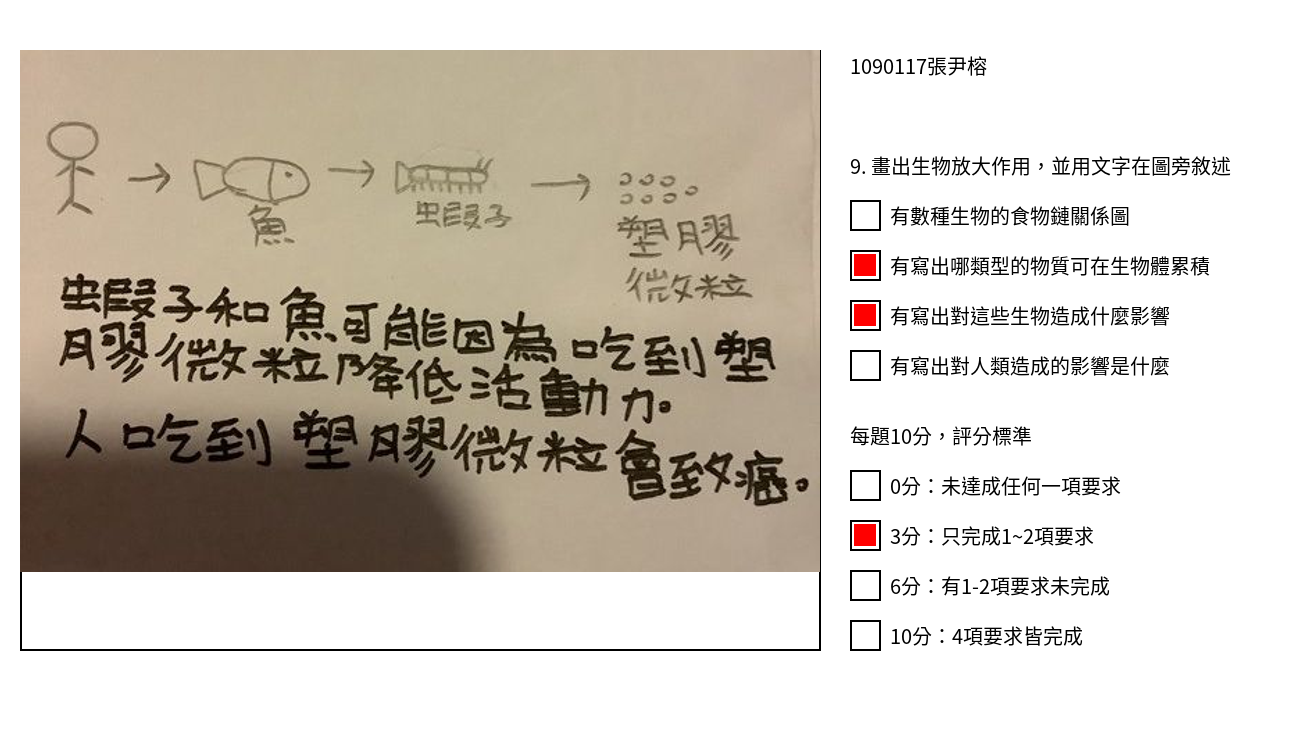 魚
蝦子
塑膠
微粒
蝦子和魚可能因為吃到塑
膠微粒降低活動力。
人吃到塑膠微粒會致癌。
1090117張尹榕
9. 畫出生物放大作用，並用文字在圖旁敘述
有數種生物的食物鏈關係圖
有寫出哪類型的物質可在生物體累積
有寫出對這些生物造成什麼影響
有寫出對人類造成的影響是什麼
每題10分，評分標準
0分：未達成任何一項要求
3分：只完成1~2項要求
6分：有1-2項要求未完成
10分：4項要求皆完成